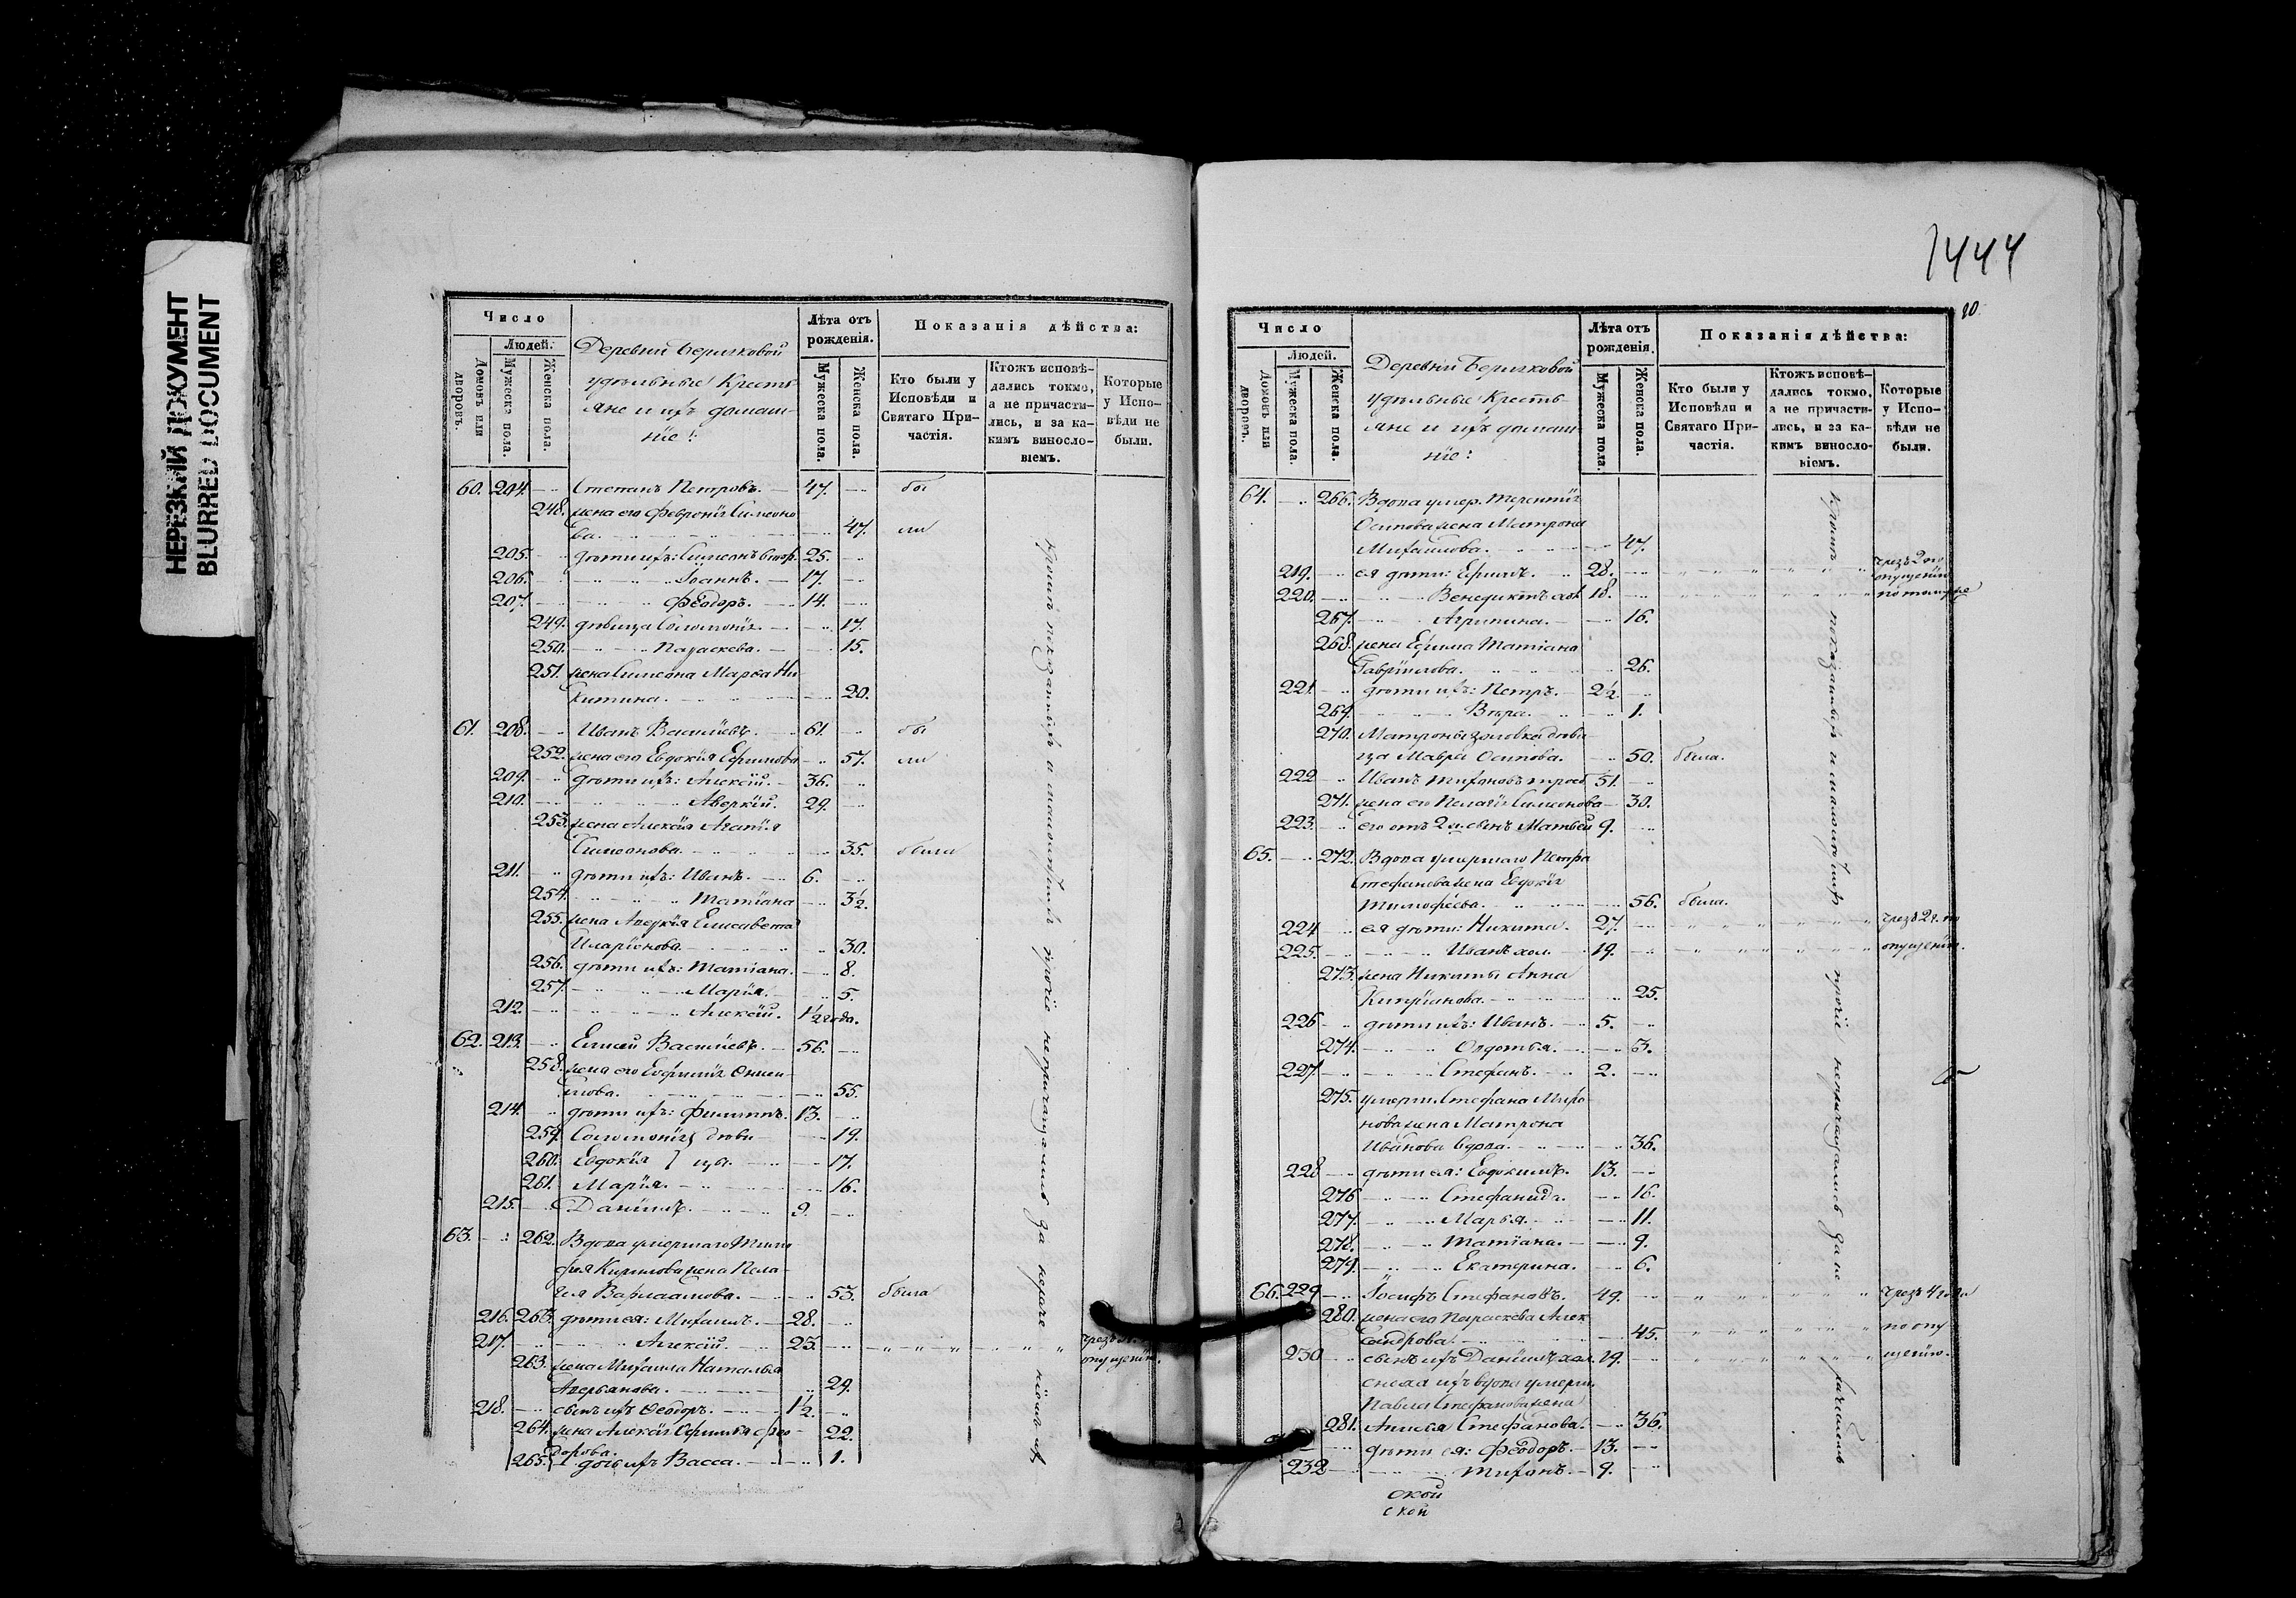 НЕРЕЗКИЙ ДОКУМЕНТ
BLURRED DOCUMENT
Число
Людей.
Домовъ или дворовъ.
Мужеска пола.
Женска пола.
Деревни Беришковой
удѣльные Кресть-
яне и ихъ домаш-
нїе:
Лѣта отъ рожденія.
Мужеска пола.
Женска пола.
Показанія дѣйства:
Кто были у Исповѣди и Святаго При-частія.
Ктожъ исповѣ-дались токмо, а не причасти-лись, и за ка-кимъ винослo-віемъ.
Которые у Испо-вѣди не были.
60. 204. Степанъ Петровъ. 47. бы
248. жена его Феврония Симеоно
ва. 47. ли
205. дѣти ихъ: Симеонъ 25.
206. Іоаннъ. 17.
207. Ѳеодоръ. 14.
249. дѣвица Соломонія. 17.
250. Параскева. 15.
251. жена Симеона Марѳа Ни
китина. 20.
61. 208. Иванъ Василіевъ. 61. бы
252. жена его Евдокія Ефимова 57. ли
209. дѣти ихъ: Алексій. 36.
210. Аверкій. 29.
253. жена Алексія Агапія
Симеонова. 35. были
211. дѣти ихъ: Иванъ. 6.
254. Татіана 3½.
255. жена Аверкія Елисавета
Иларіонова. 30.
256. дѣти ихъ: Татіана. 8.
257. Марія. 5.
212. Алексій. 1½ года.
62. 213. Елисей Василіевъ. 56.
258. жена его Евфимія
55.
214. дѣти ихъ: Филиппъ. 13.
259. Соломонія дѣви 19.
260. Евдокія } цы. 17.
261. Марія. 16.
215. Даніилъ. 9.
63. 262. Вдова умершаго Тимо
фея Кирилова жена Пела
гея Варлаамова. 53. была
216. 263. дѣти ея: Михаилъ. 28.
217. Алексій. 23. чрезъ
опущенію.
263. жена Михаила Наталья
Аверьянова. 29.
218. сынъ ихъ Ѳеодоръ. 1½.
264. жена Алексія Ѳео 22.
дорова.
265. дочь ихъ Васса. 1.
кромѣ показанныхъ а прочіе непричащались за
1444
10
Число
Людей.
Домовъ или дворовъ.
Мужеска пола.
Женска пола.
Деревни Беришковой
удѣльные Кресть-
яне и ихъ домаш-
нїе:
Лѣта отъ рожденія.
Мужеска пола.
Женска пола.
Показанія дѣйства:
Кто были у Исповѣди и Святаго При-частія.
Ктожъ исповѣ-дались токмо, а не причасти-лись, и за ка-кимъ винослo-віемъ.
Которые у Испо-вѣди не были.
64. 266. Вдова умер. Терентія
Осипова жена Матрона
Михайлова. 47.
219. ея дѣти: Ефимъ. 28. чрезъ 2 по
опущенію
220. Венедиктъ хол. 18.
267. Агрипина. 16.
268. жена Ефима Татіана
Гавріилова. 26.
221. дѣти ихъ: Петръ. 2½.
269. Вѣра. 1.
270. Матроны золовка дѣви
ца Мавра Осипова. 50. была.
222 Иванъ Тихоновъ 51.
271. жена его Пелагія Симеонова 30.
223. его отъ 2 ж. сынъ Матвей 9.
65. 272. Вдова умершаго Петра
Стефанова жена Евдокія
Тимофеева. 56. была.
224 ея дѣти: Никита. 27. чрезъ 2 г. по
225. Иванъ хол. 19. опущенію.
273. жена Никиты Анна
Кипріанова. 25.
226 дѣти ихъ: Иванъ. 5.
274. Овдотья. 3.
227. Стефанъ. 2.
275. умерш. Стефана Миро
нова жена Матрона
Иванова вдова. 36.
228 дѣти ея: Евдокимъ. 13.
276 Стефанида. 16.
277. Марья. 11.
278. Татіана. 9.
279. Екатерина. 6.
66. 229 Іосифъ Стефановъ. 49. чрезъ 4 года
280. жена его Параскева Алек
сандрова. 45. по опу
230 сынъ ихъ Даніилъ хол. 19. щенію.
сноха ихъ вдова умерш.
Павла Стефанова жена
281. Анисья Стефанова. 36.
дѣти ея: Ѳеодоръ. 13.
232 Тихонъ. 9.
кромѣ показанныхъ и прочіе непричащались
ской
ской